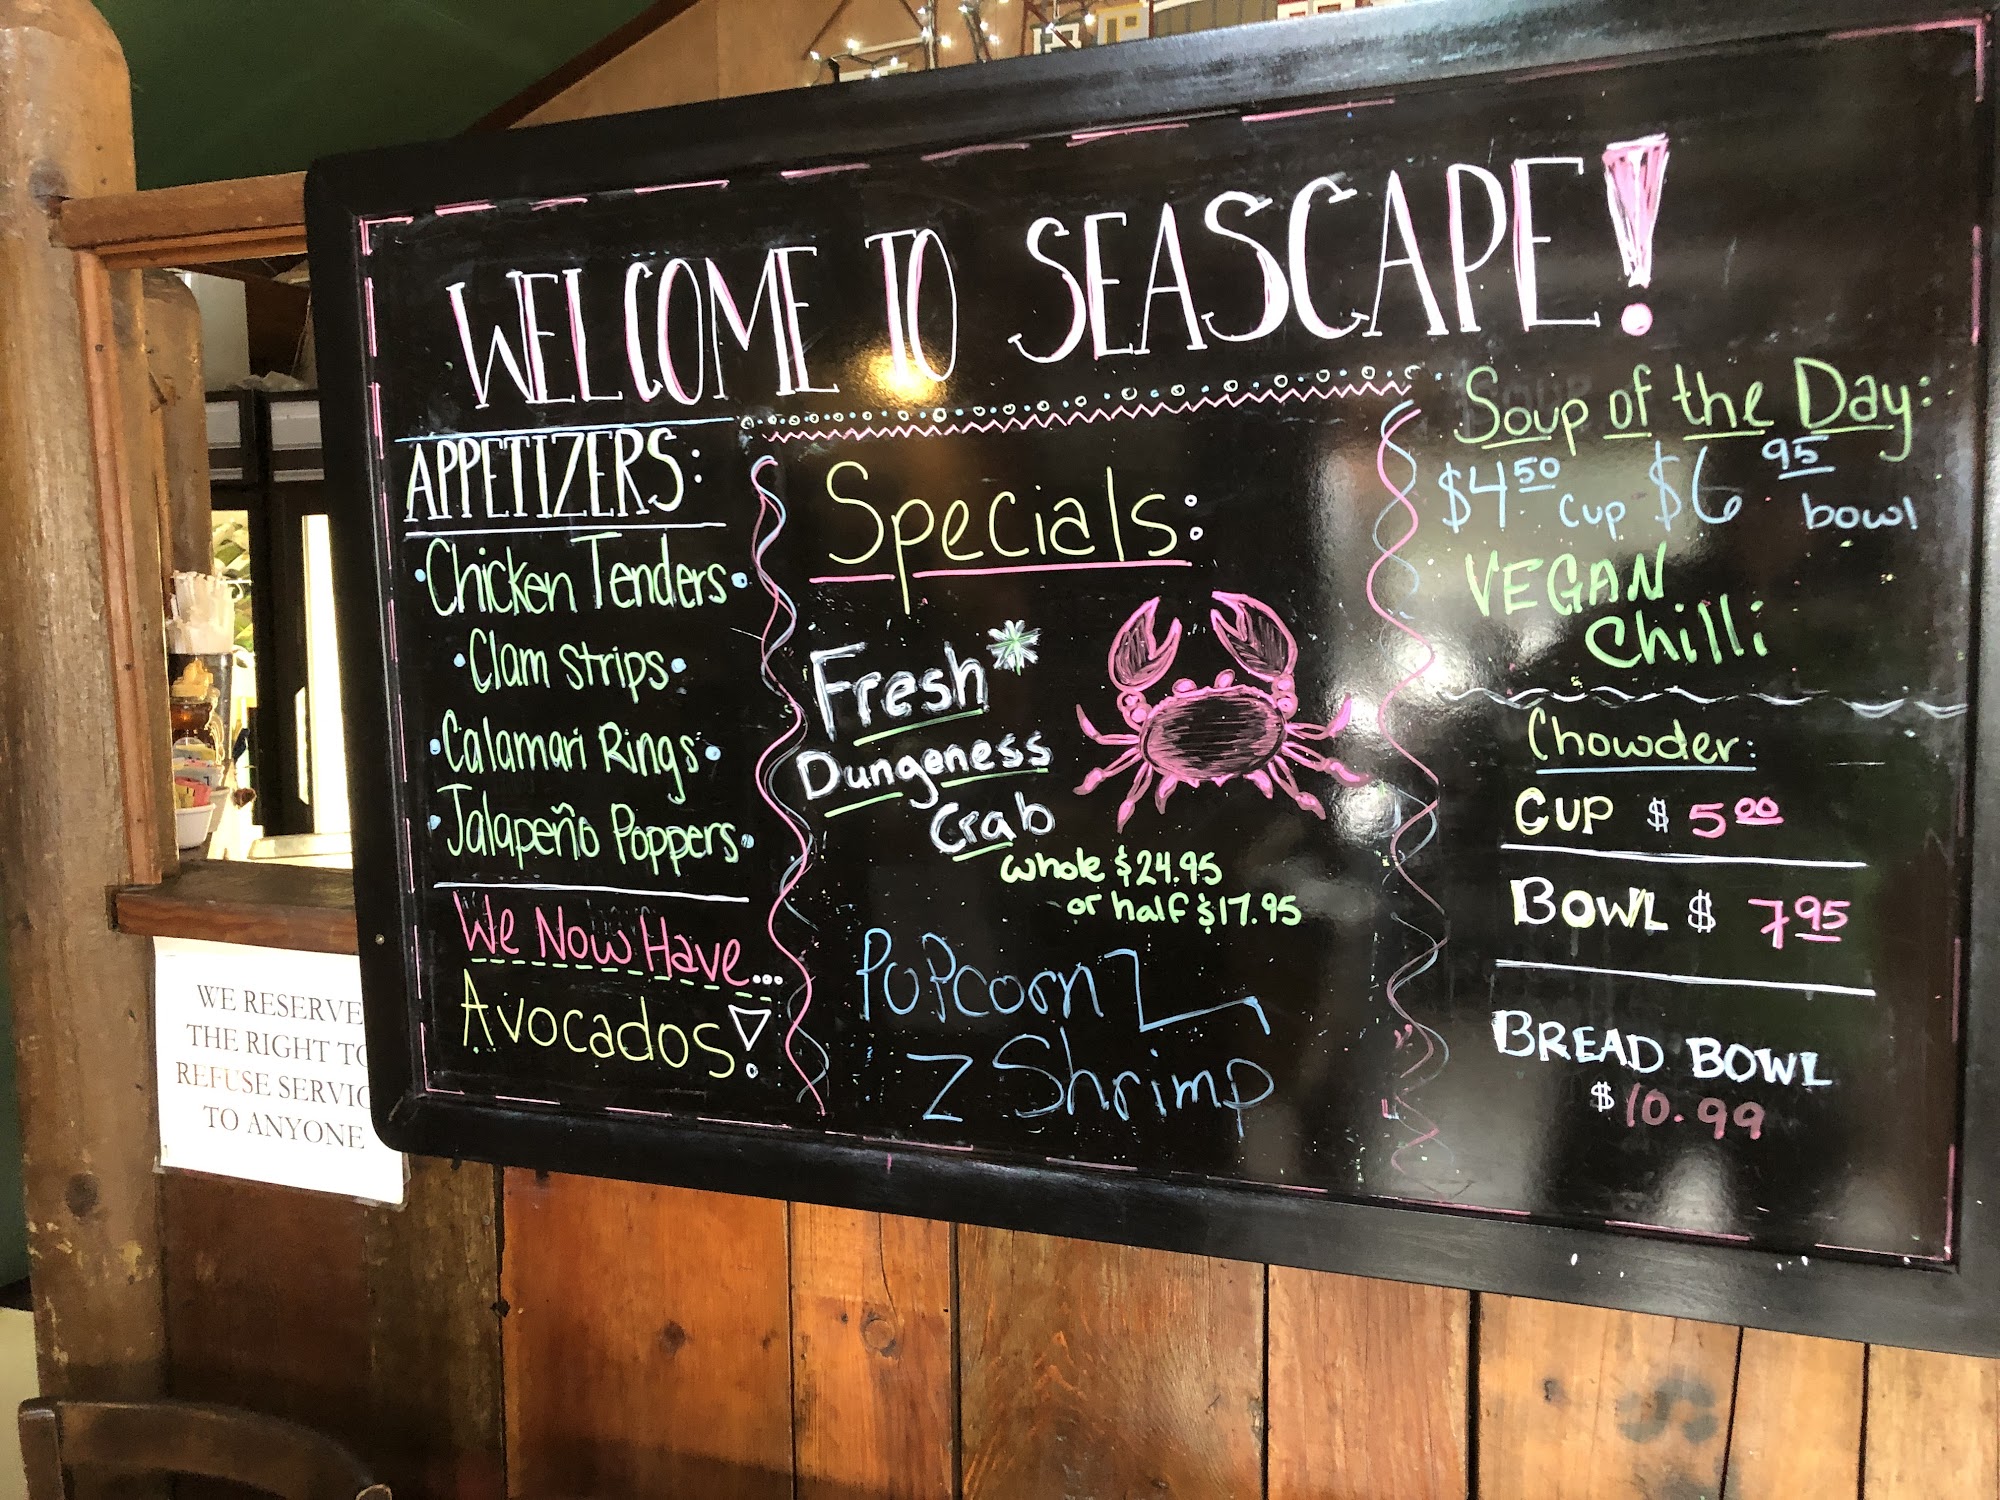 WELCOME TO SEASCAPE!
APPETIZERS:
·Chicken Tenders·
·Clam Strips·
·Calamari Rings·
·Jalapeño Poppers·
We Now Have...
Avocados!
Specials:
Fresh*
Dungeness
Crab
whole $24.95
or half $17.95
Popcorn
Shrimp
Soup of the Day:
$4.50 cup $6.95 bowl
VEGAN
Chilli
Chowder:
CUP $ 5.00
BOWL $ 7.95
BREAD BOWL
$ 10.99
WE RESERVE
THE RIGHT TO
REFUSE SERVIC
TO ANYONE